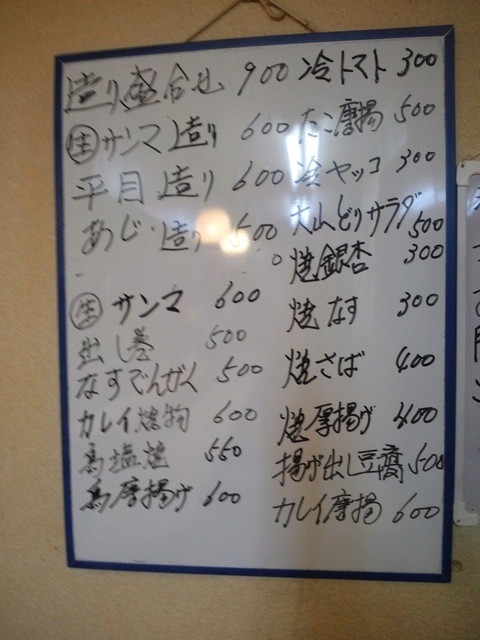 造り盛合せ 900
生サンマ造り 600
平目造り 600
あじ造り 500
生サンマ 600
出し巻 500
なすでんがく 500
カレイ焼物 600
鳥塩焼 550
鳥唐揚げ 600
冷トマト 300
たこ唐揚 500
冷ヤッコ 300
大山どりサラダ 500
焼銀杏 300
焼なす 300
焼さば 400
焼厚揚げ 400
揚げ出し豆腐 500
カレイ唐揚 600